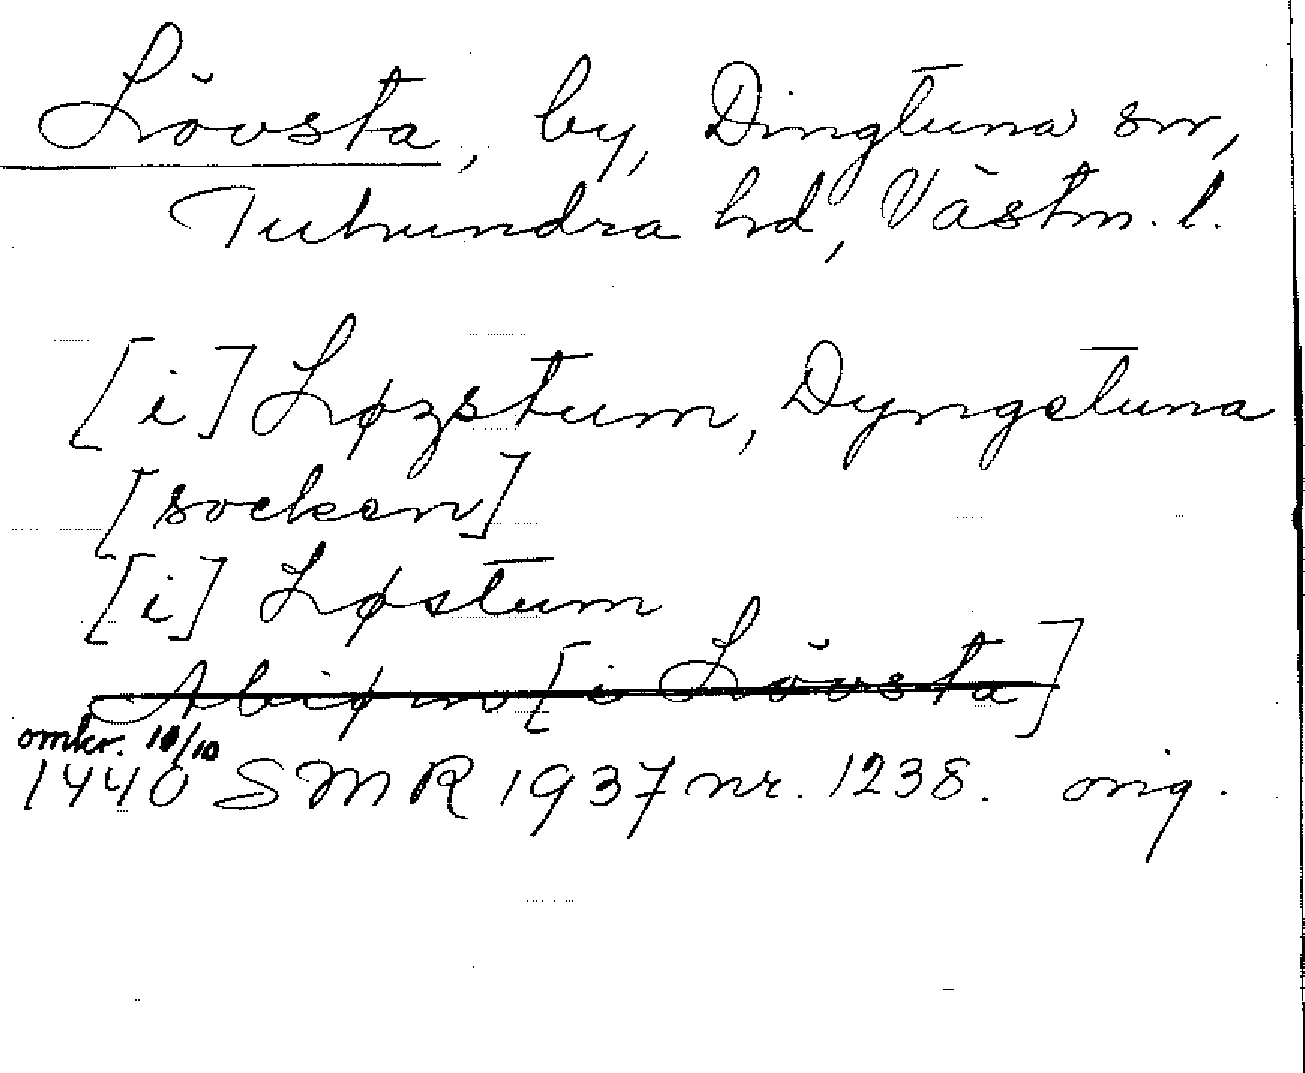 Lövsta, by, Dingtuna sn,
Tuhundra hd, Västm. l.
[i] Løzstum, Dyngetuna
[socken]
[i] Løstum
Abiørn [i Lövsta]
omkr. 10/10
1440 SMR 1937 nr. 1238. orig.